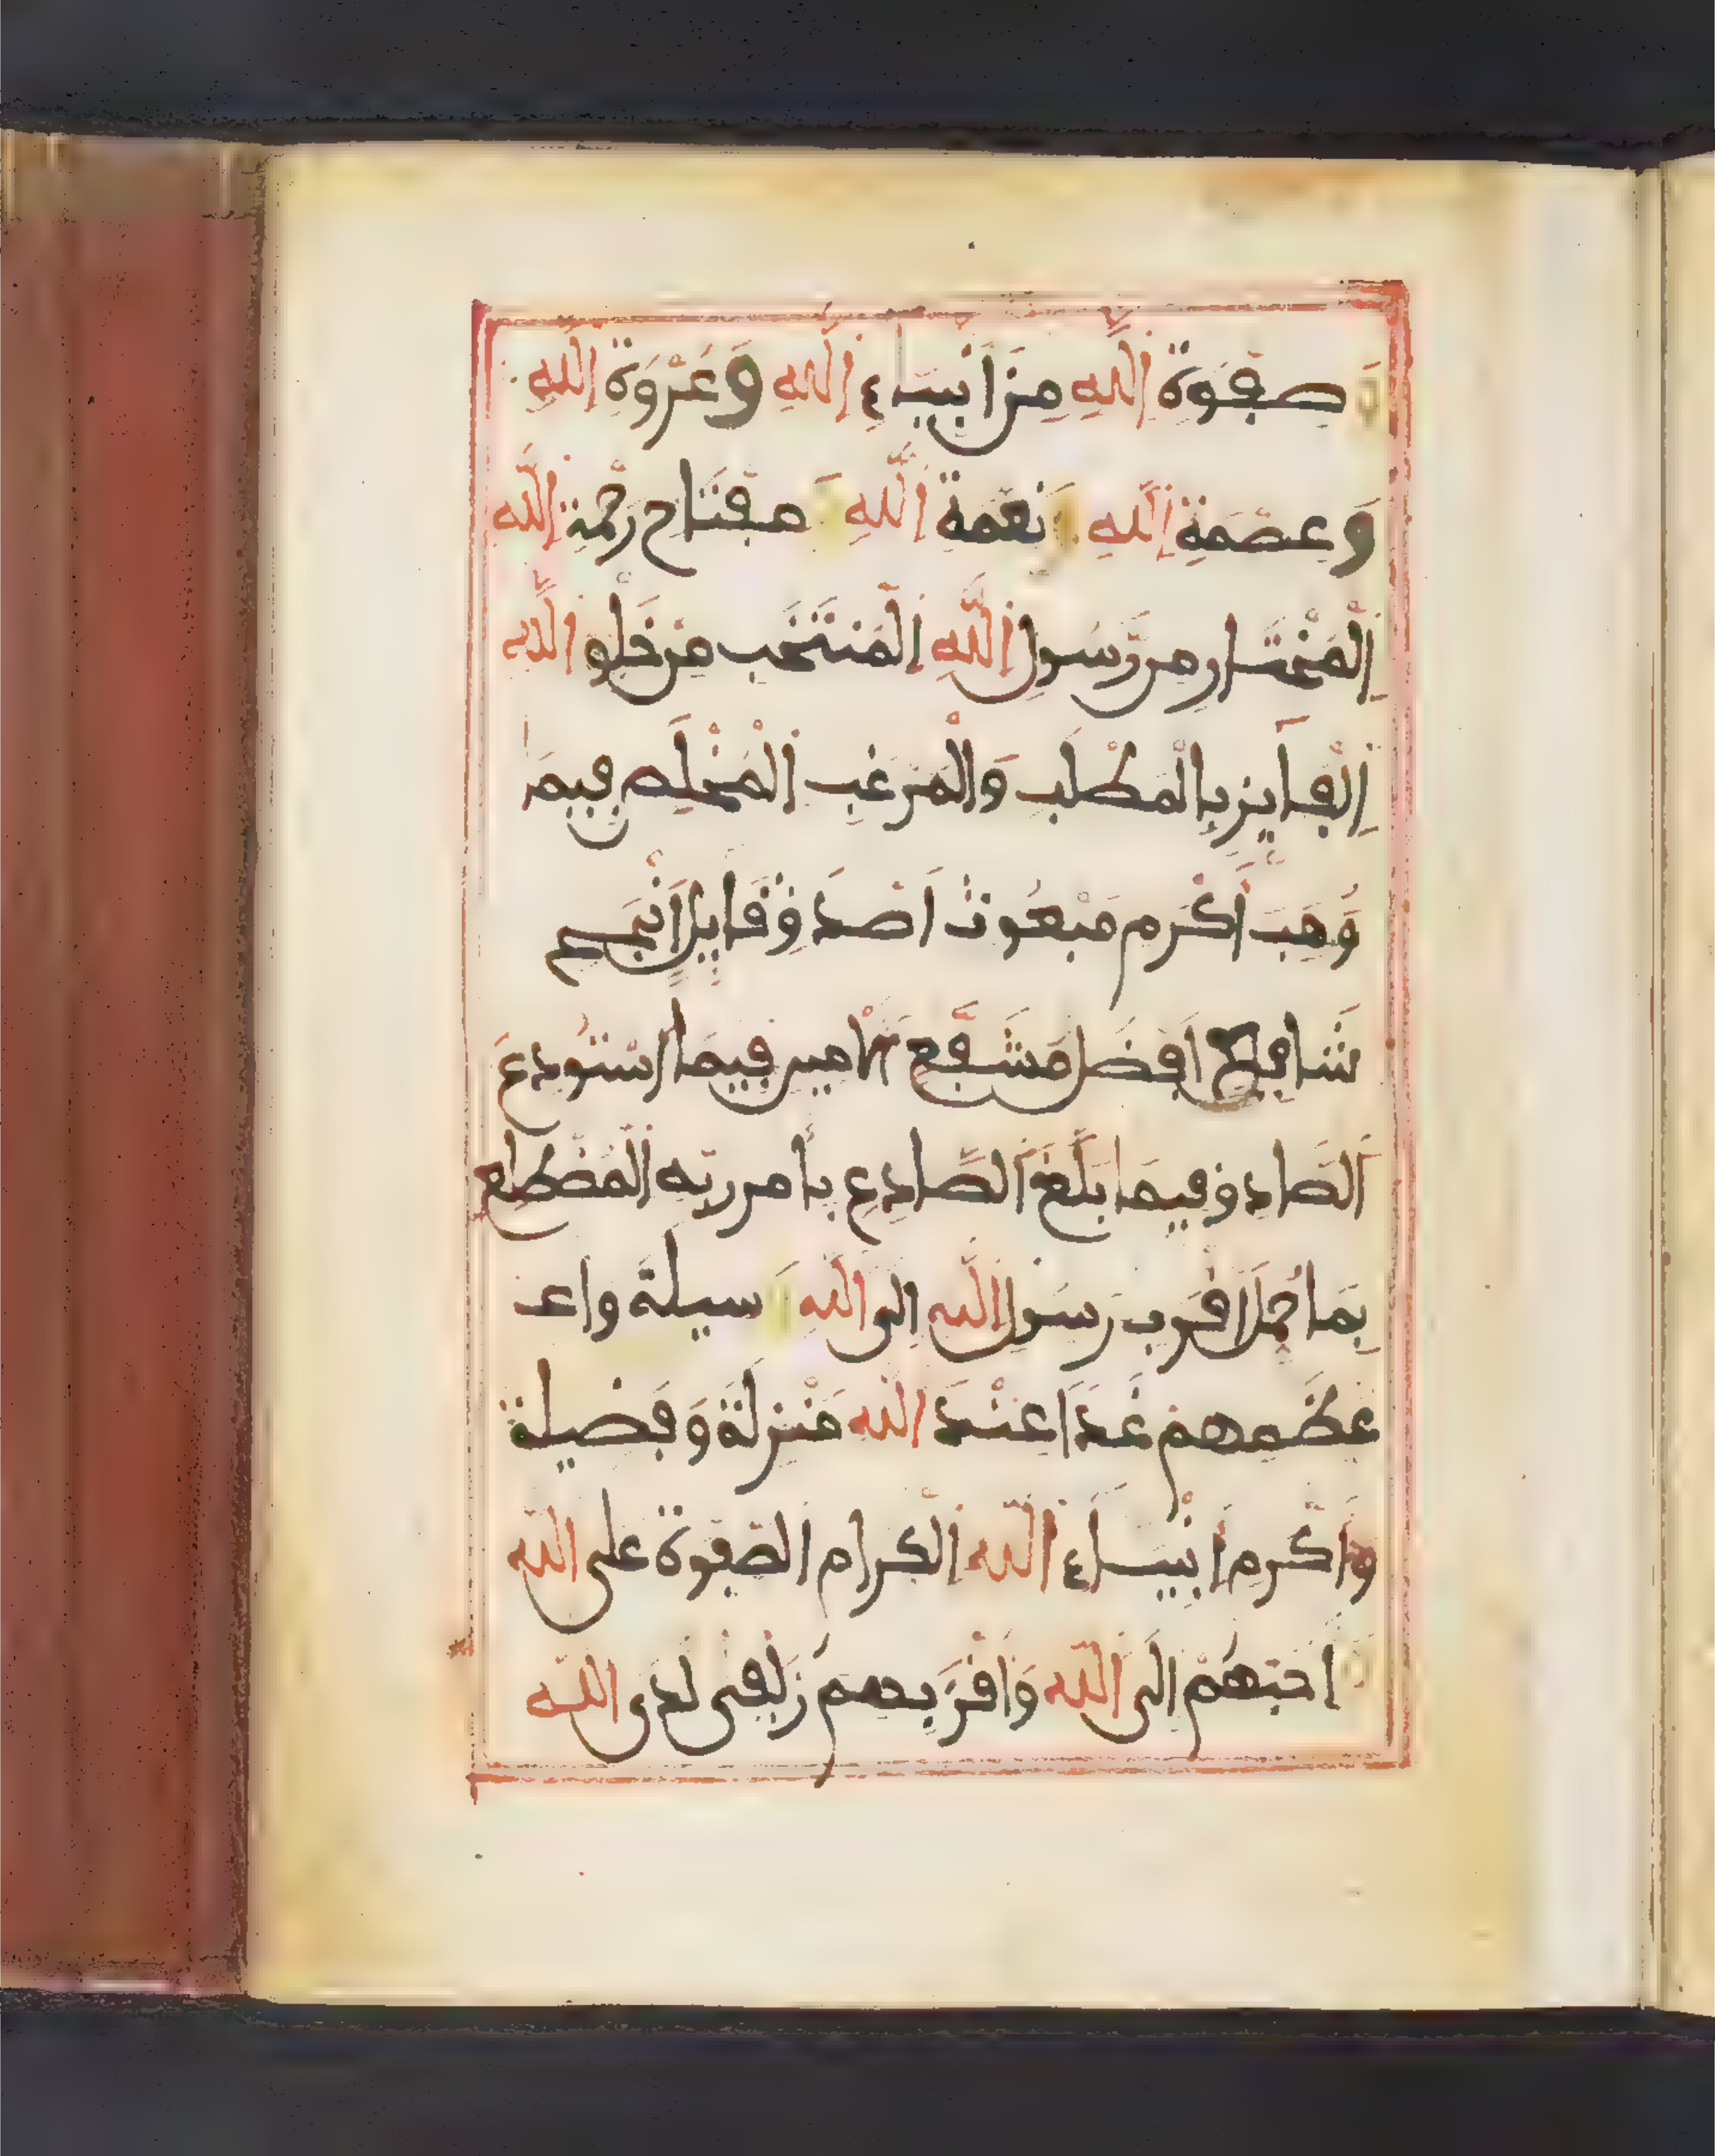 وَصَفْوَةِ اللَّهِ مِنْ أَنْبِيَاءِ اللَّهِ وَعُرْوَةِ اللَّهِ
وَعِصْمَةِ اللَّهِ وَنِعْمَةِ اللَّهِ وَمِفْتَاحِ رَحْمَةِ اللَّهِ
الْمُخْتَارِ مِن رَّسُولِ اللَّهِ الْمُنْتَخَبِ مِنْ خَلْقِ اللَّهِ
الْفَايِزِ بِالْمَطْلَبِ وَالْمَرْغَبِ الْمُخْلَصِ فِيمَا
وُهِبَ أَكْرَمِ مَبْعُوثٍ أَصْدَقِ قَايِلٍ أَنْجَحِ
شَافِعٍ أَفْضَلِ مُشَفَّعٍ الْأَمِينِ فِيمَا اسْتُودِعَ
الصَّادِقِ فِيمَا بَلَّغَ الصَّادِعِ بِأَمْرِ رَبِّهِ الْمُضْطَلِعِ
بِمَا حُمِّلَ أَقْرَبِ رَسُولِ اللَّهِ إِلَى اللَّهِ وَسِيلَةً وَاعـ
ـظَمِهِمْ غَدًا عِنْدَ اللَّهِ مَنْزِلَةً وَفَضِيلَةً
وَأَكْرَمِ أَنْبِيَاءِ اللَّهِ الْكِرَامِ الصَّفْوَةِ عَلَى اللَّهِ
وَأَحَبِّهِمْ إِلَى اللَّهِ وَأَقْرَبِهِمْ زُلْفَى لَدَى اللَّهِ